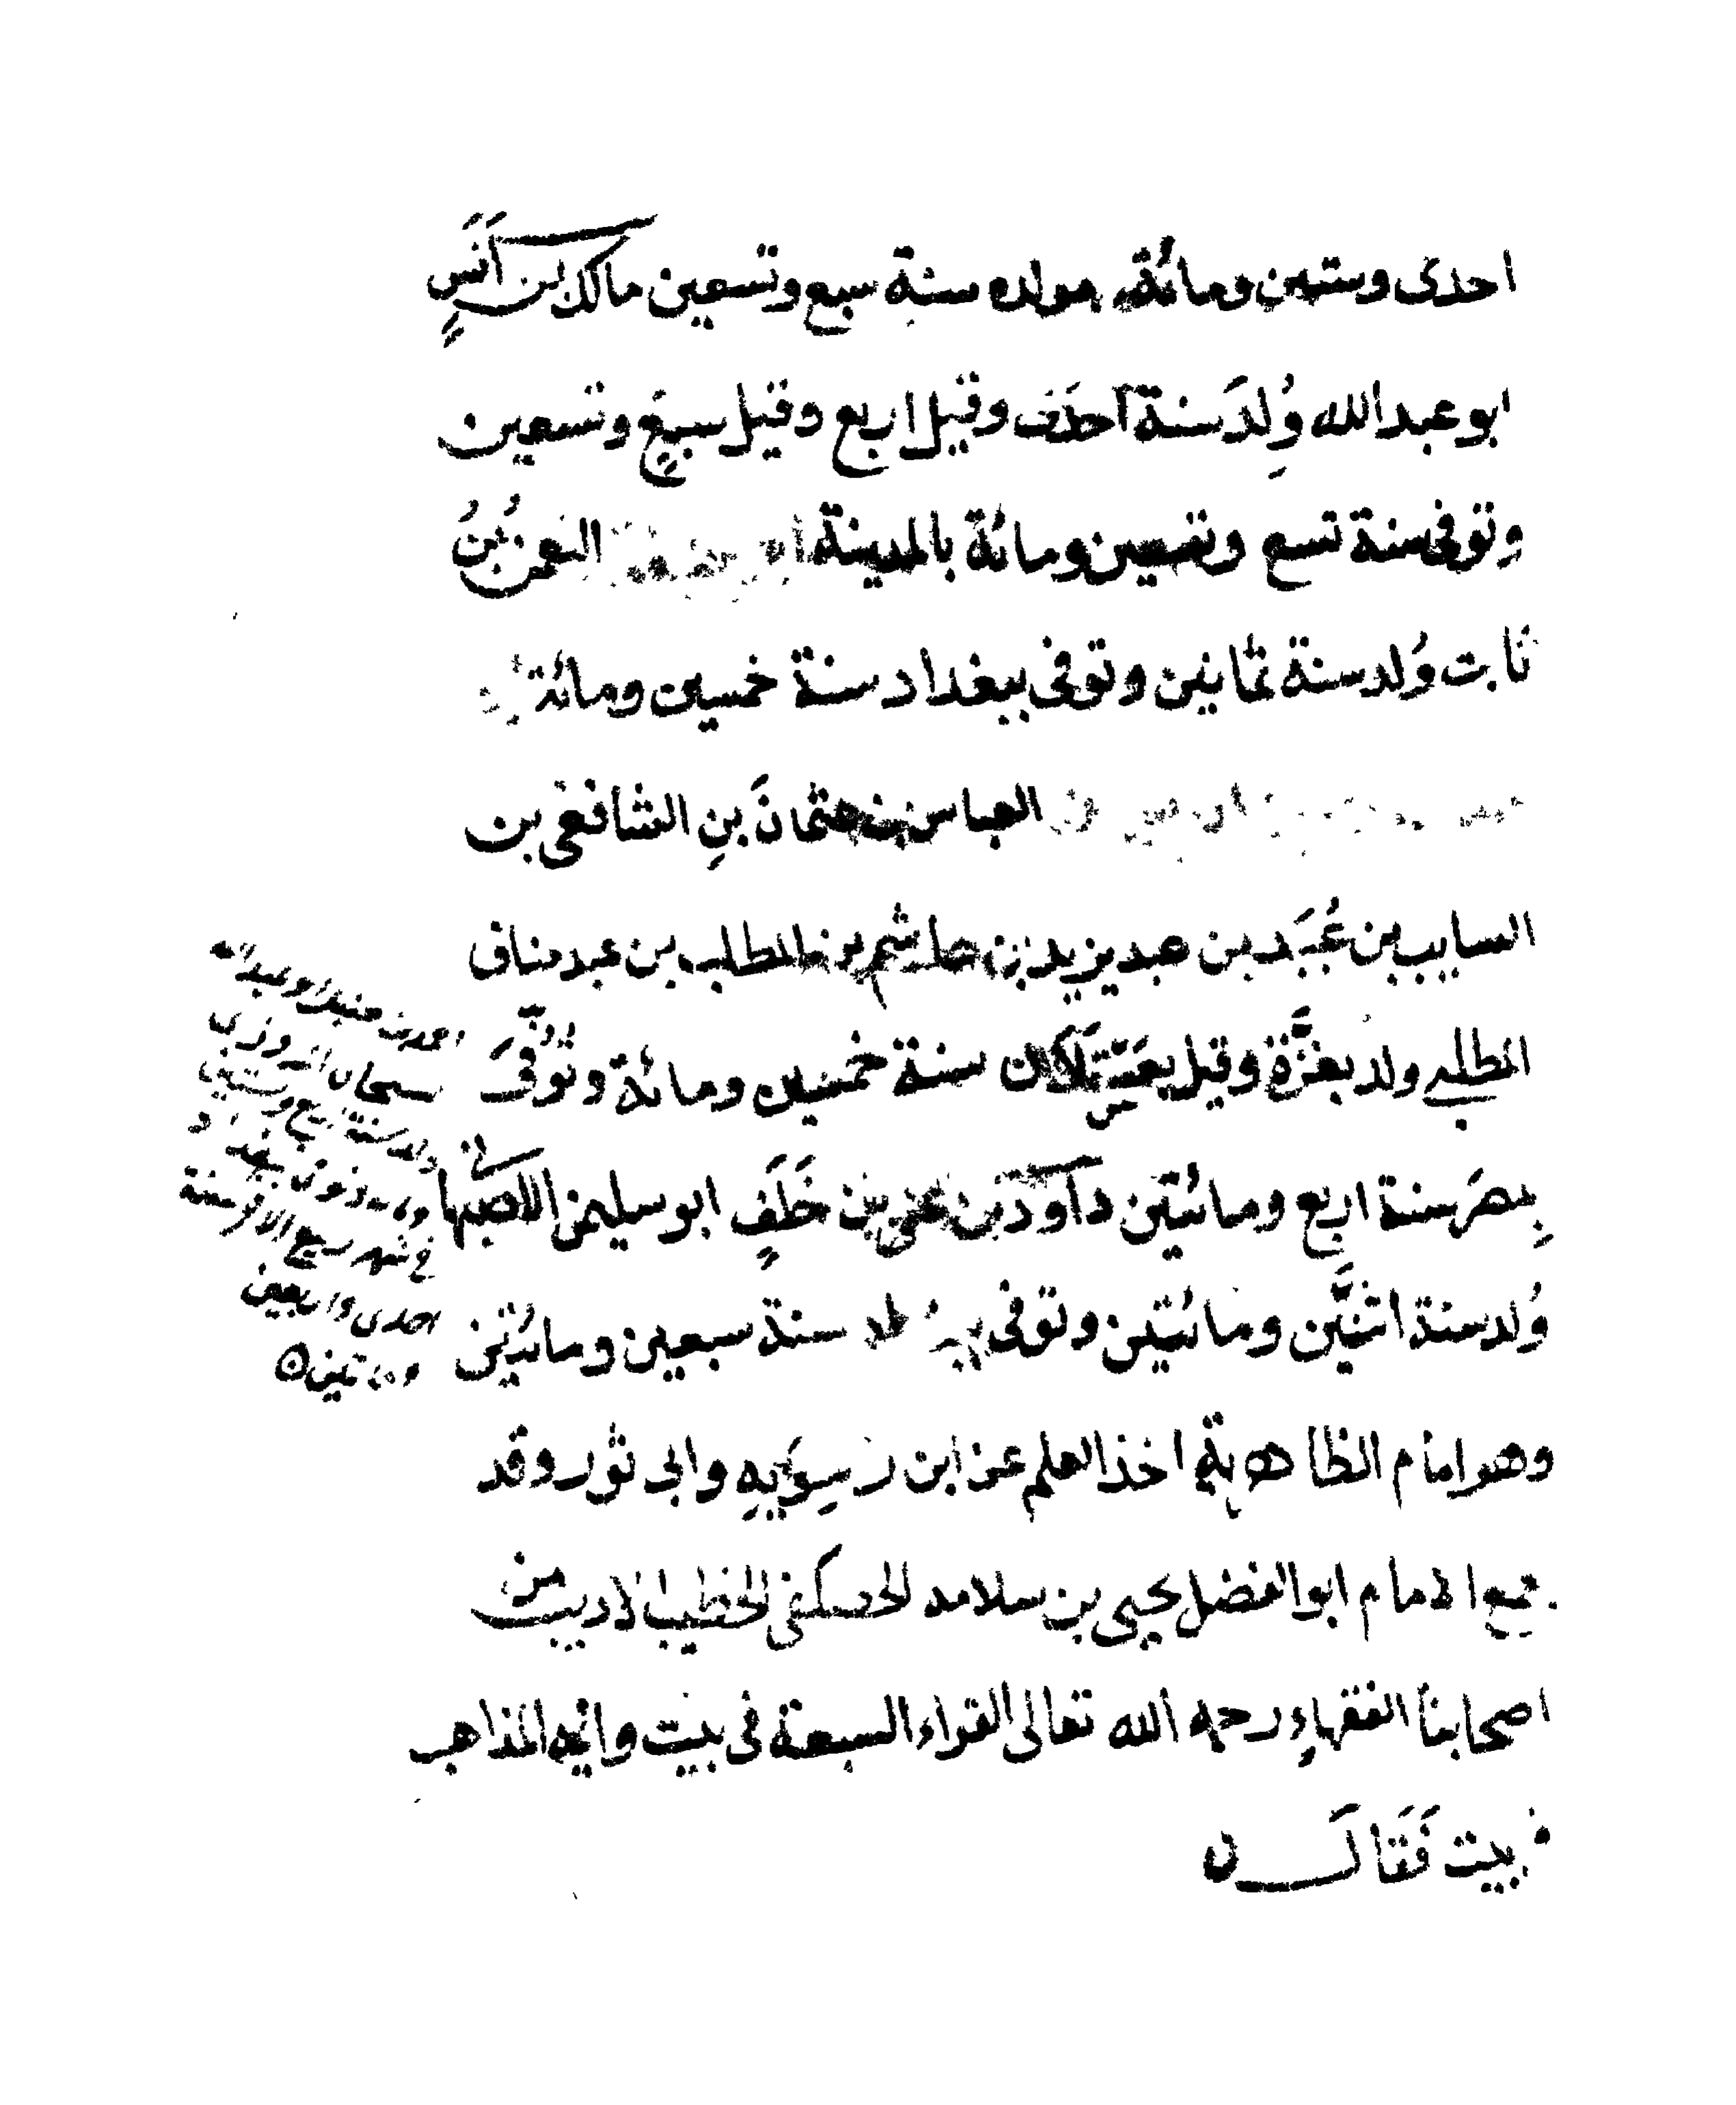 احدى وستين ومائة، مولده سنة سبع وتسعين مالك بن أَنَسٍ
ابو عبد الله وُلِدَ سنة احدى وقيل اربع وقيل سبعٍ وتسعين
وتوفى سنة تسع وتسعين ومائة بالمدينة النعمن بْنُ
ثابت وُلد سنة ثمانين وتوفى ببغداد سنة خمسين ومائة
العباس بن عثمانَ بنِ الشافعى بن
السايب بن عُبَيد بن عبد يزيد بن هاشم بن المطلب بن عبد مناف
المطلبى ولد بغزَّة وقيل بعسقلان سنة خمسين ومائة وتوُفّىَ
بِمصرَ سنة اربع ومائتين داوُد بن على بن خَلَفٍ ابو سليمن الاصبهانى
وُلد سنة اثنَّين ومائتين وتوفى سنة سبعين ومائتين
وهو امام الظاهرية اخذ العلم عن ابن رَاهِوَيهِ وابى ثور وقد
جمع الامام ابو الفضل يحيى بن سلامه الحصكفى الخطيب الاديب من
اصحابنا الفقهاءِ رحمه الله تعالى القراء السبعة فى بيت وائمه المذاهب
فى بيت فَقَال
احمد بن حنبل ابو عبد الله
ولد سنة اربع وستين
ومائة وتوفى ببغداد
فى شهر ربيع الاخر سنة
احدى واربعين
ومائتين ٥